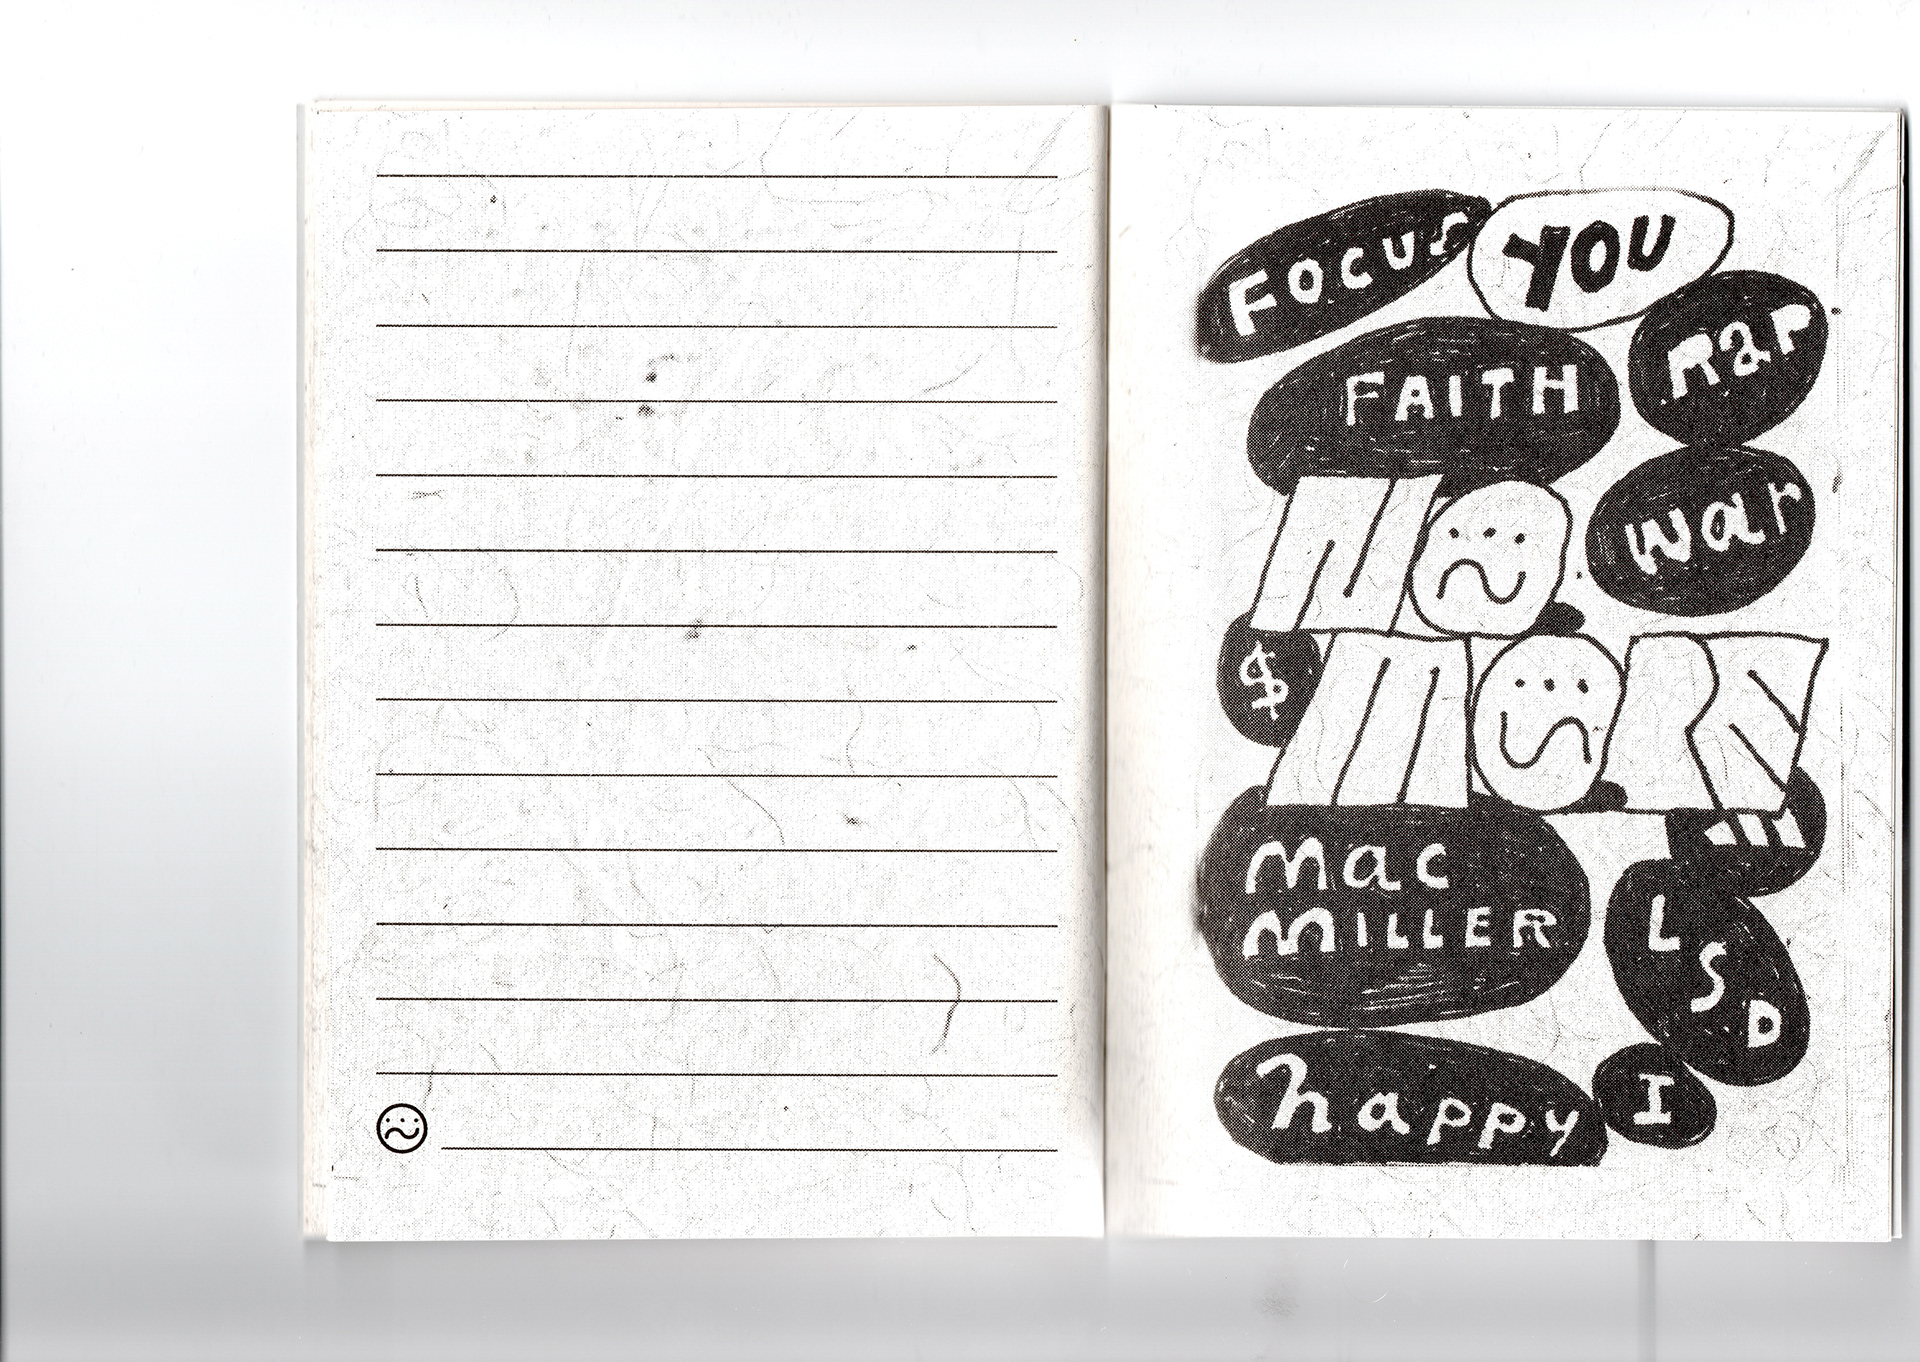 Focus YOU
FAITH Rap
NO war
$ MORE
!!!
mac
MILLER
LSD
happy I